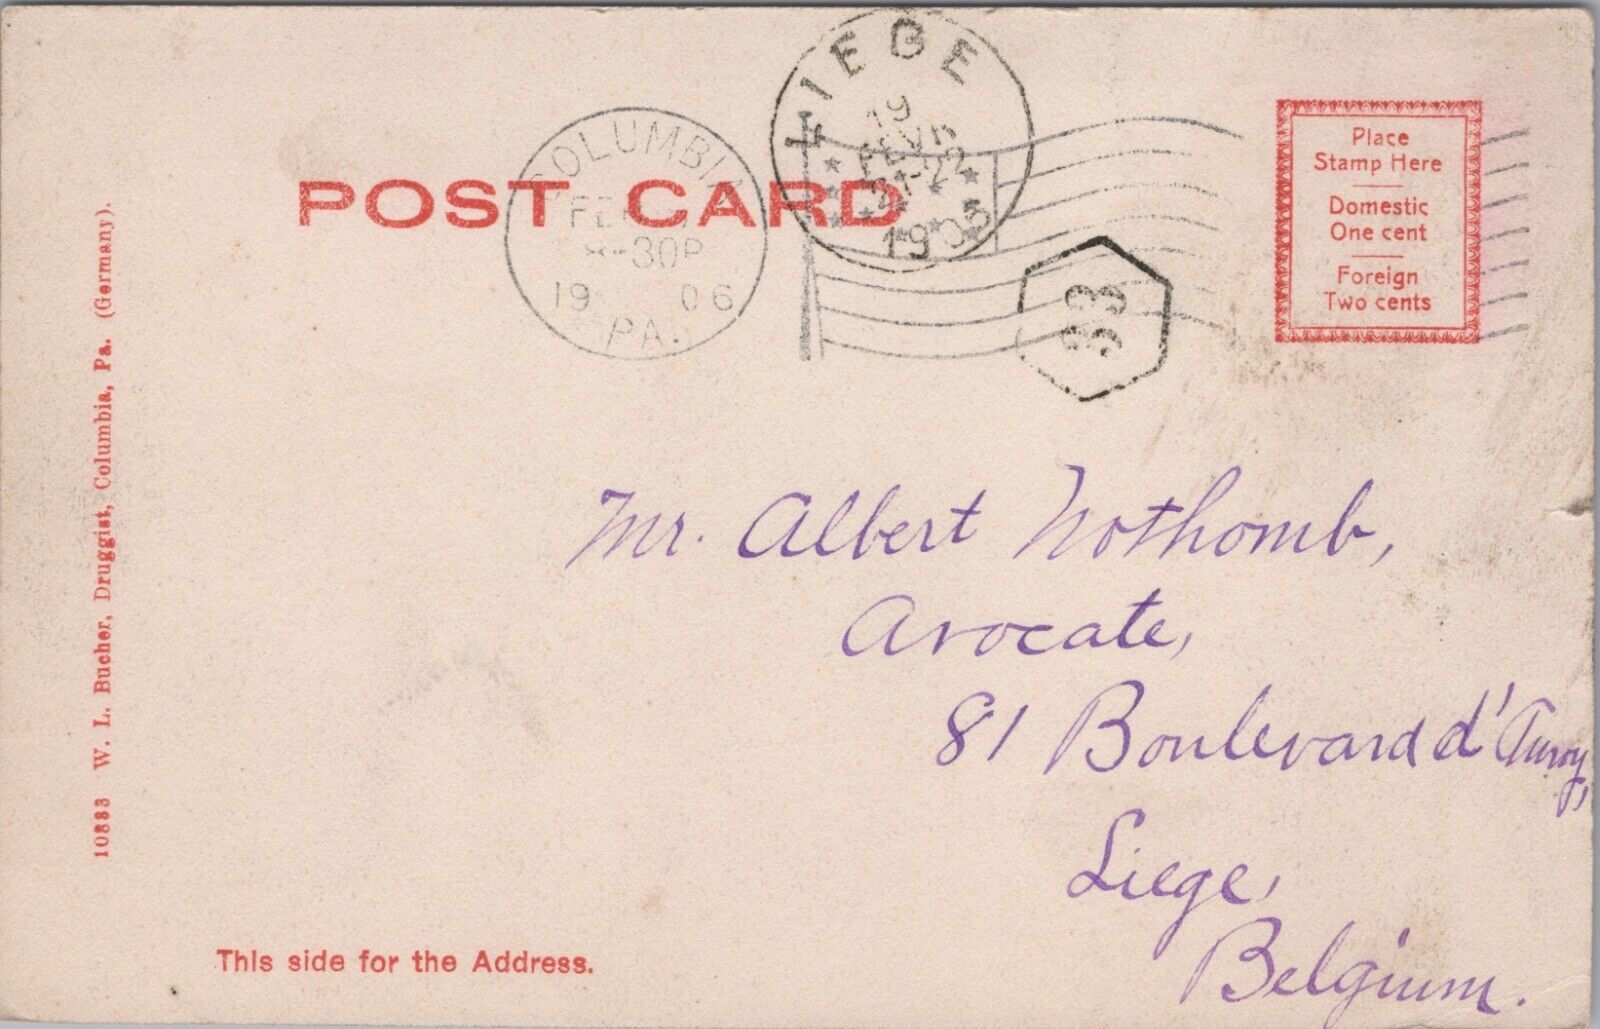 POST CARD
COLUMBIA
30P
19 06
PA.
LIEGE
19
21-22
1905
33
Place
Stamp Here
Domestic
One cent
Foreign
Two cents
10883 W. L. Bucher, Druggist, Columbia, Pa. (Germany).
Mr. Albert Nothomb,
Avocate,
81 Boulevard d'Avroy,
Liege,
Belgium.
This side for the Address.